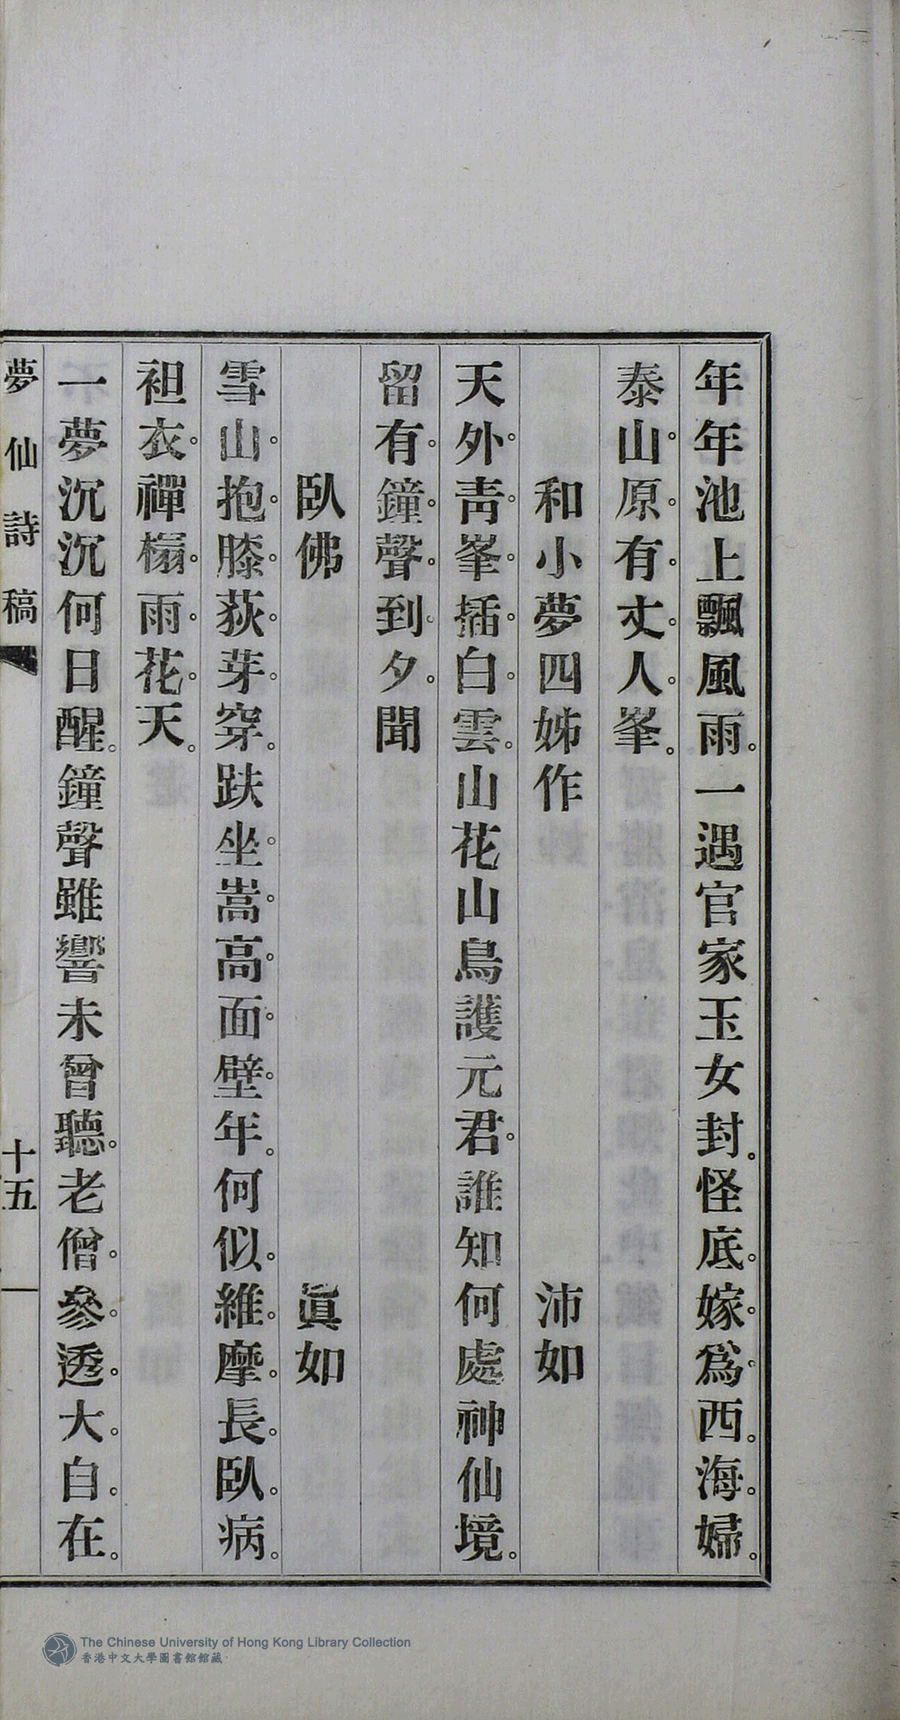 年年池上飄風雨。一遇官家玉女封。怪底。嫁。爲。西。海。婦。
泰山。原。有。丈。人。峯。
和小夢四姊作　沛如
天外。靑。峯。插。白。雲。山花山鳥護元君。誰知何處神仙境。
留有。鐘。聲。到。夕。聞
臥佛　眞如
雪山。抱。膝。荻。芽。穿。趺坐。嵩。高。面。壁。年。何似。維。摩。長。臥。病。
袒衣。禪榻。雨。花。天。
一夢沉沉何日醒。鐘聲雖響未曾聽。老僧。參。透。大。自。在。
夢仙詩稿
十五
The Chinese University of Hong Kong Library Collection
香港中文大學圖書館館藏